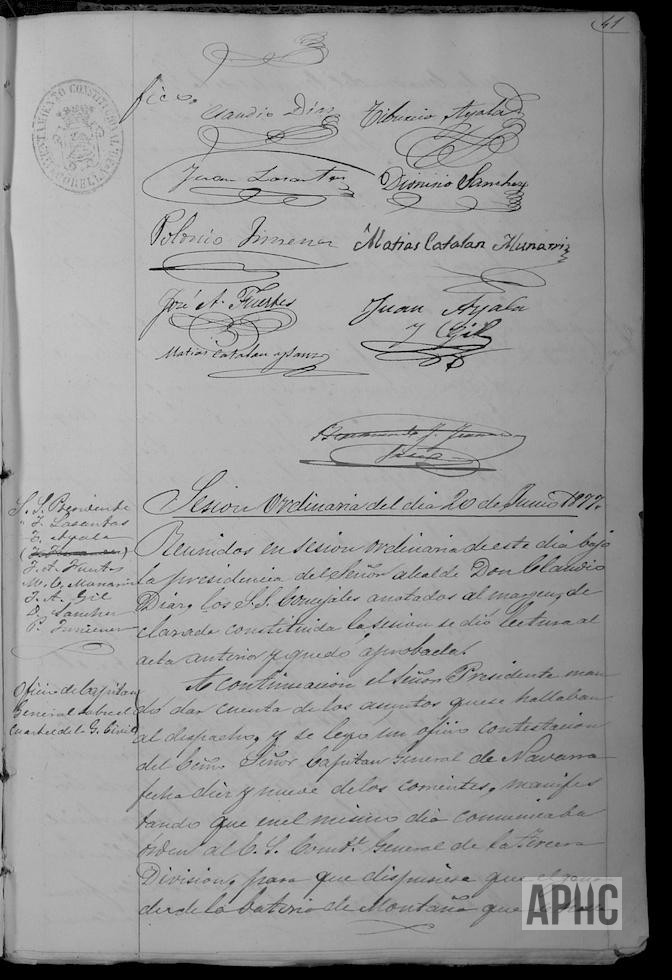 41
AYUNTAMIENTO CONSTITUCIONAL
CORELLA
ficio
Claudio Diaz
Tiburcio Ayala
Juan Lasantas
Dionisio Sanchez
Polonio Jimenez
Matias Catalan Munarriz
José A. Fuertes
Juan Ayala
y Gil
Matias Catalan y Sanz
Sesion Ordinaria del dia 20 de Junio 1877.
S. S. Presidente
" J. Lasantas
T. Ayala
J. A. Fuertes
M. C. Munarriz
J. A. Gil
D. Sanchez
P. Jimenez
Reunidos en sesion ordinaria de este dia bajo
la presidencia del Señor alcalde Don Claudio
Diaz, los S.S. Concejales anotados al margen, de
clarada constituida la sesion se dió lectura al
acta anterior y quedó aprobada.
Oficio del Capitan
General sobre el
cuartel de la G. Civil
A continuacion el Señor Presidente man
dó dar cuenta de los asuntos que se hallaban
al despacho, y se leyó un oficio contestacion
del Exmo. Señor Capitan General de Navarra
fecha diez y nueve de los corrientes, manifes
tando que en el mismo dia comunicaba
órden al E. S. Comte. General de la tercera
Division, para que dispusiera que el
der de la bateria de Montaña que
APHC